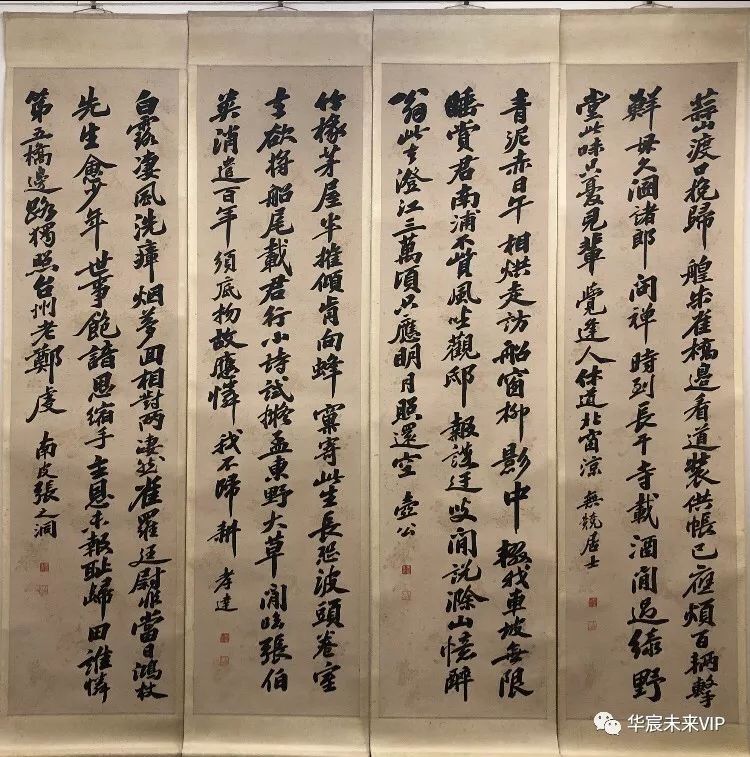 蒜山渡口挽歸艎朱雀橋邊看道裝供帳已應煩百輛擊
鮮毋久溷諸郎問禪時到長干寺載酒閒過綠野
堂此味只憂兒輩覺逢人休道北窗涼 無競居士
青泥赤日午相烘走訪船窗柳影中輟我東坡無限
睡賞君南浦不貲風坐觀邸報談迂叟閒說滁山憶醉
翁此去澄江三萬頃只應明月照還空 壺公
竹椽茅屋半摧傾肯向蜂窠寄此生長恐波頭卷室
去欲將船尾載君行小詩試擬孟東野大草閒臨張伯
英消遣百年須底物故應憐我不歸耕 孝達
白露凄風洗瘴烟夢回相對兩凄然雀羅廷尉非當日鴻杖
先生愈少年世事飽諳思縮手主恩未報恥歸田誰憐
第五橋邊路獨照台州老鄭虔 南皮張之洞
华宸未来VIP